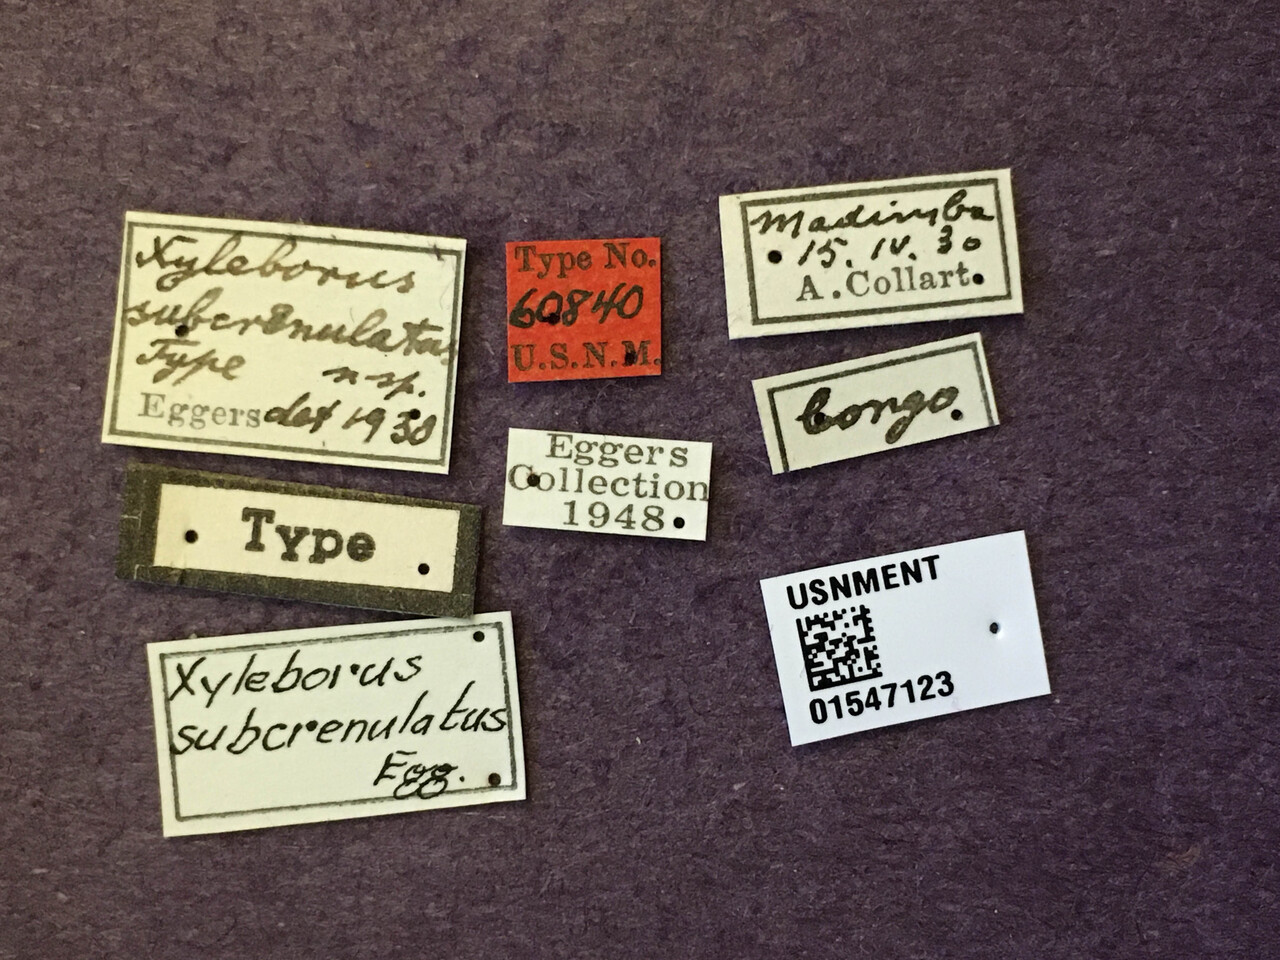 Xyleborus
subcrenulatus
Type n. sp.
Eggers det 1930
Type
Xyleborus
subcrenulatus
Egg.
Type No.
60840
U.S.N.M.
Eggers
Collection
1948
Madimba
15. IV. 30
A. Collart.
Congo.
USNMENT
01547123